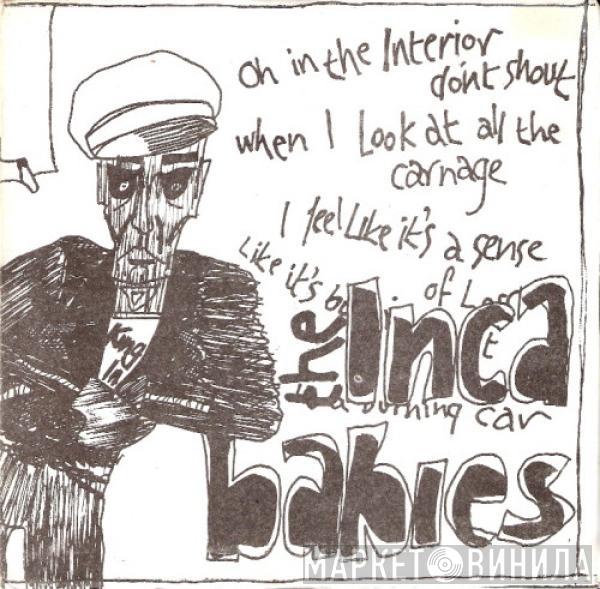 Oh in the Interior
dont shout
when I Look at all the
carnage
I feel Like it's a sense
of
Like it's
the Inca
burning car
babies
King
МАРКЕТ ВИНИЛА